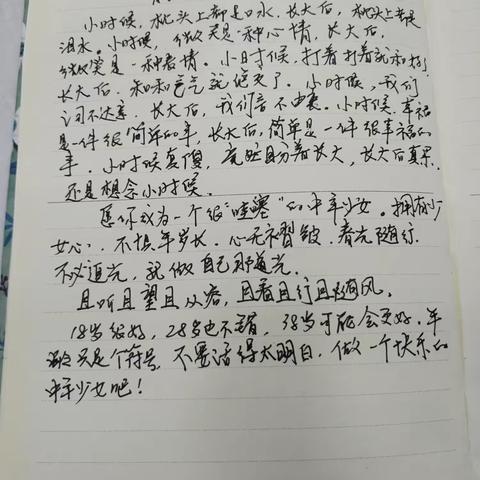 小时候,枕头上都是口水,长大后,枕头上都是
泪水。小时候,微笑是一种心情,长大后,
微笑是一种表情。小时候,打着打着就和好了,
长大后,和和气气就绝交了。小时候,我们
词不达意,长大后,我们言不由衷。小时候,幸福
是一件很简单的事,长大后,简单是一件很幸福的
事。小时候真傻,竟然盼着长大,长大后真累,
还是想念小时候。
愿你成为一个很“哇塞”的中年少女。拥有少
女心,不惧年岁长,心无褶皱,春光随行,
不必追光,就做自己那道光。
且听且望且从容,且看且行且随风。
18岁很好,28岁也不错,38岁可能会更好,年
龄只是个符号,不要活得太明白,做一个快乐的
中年少女吧!